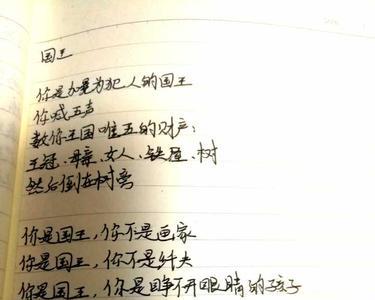 国王
你是加冕为犯人的国王
你喊五声
数你王国唯五的财产:
王冠、母亲、女人、铁屋、树
然后倒在树旁
你是国王,你不是画家
你是国王,你不是纤夫
你是国王,你是睁不开眼睛的孩子